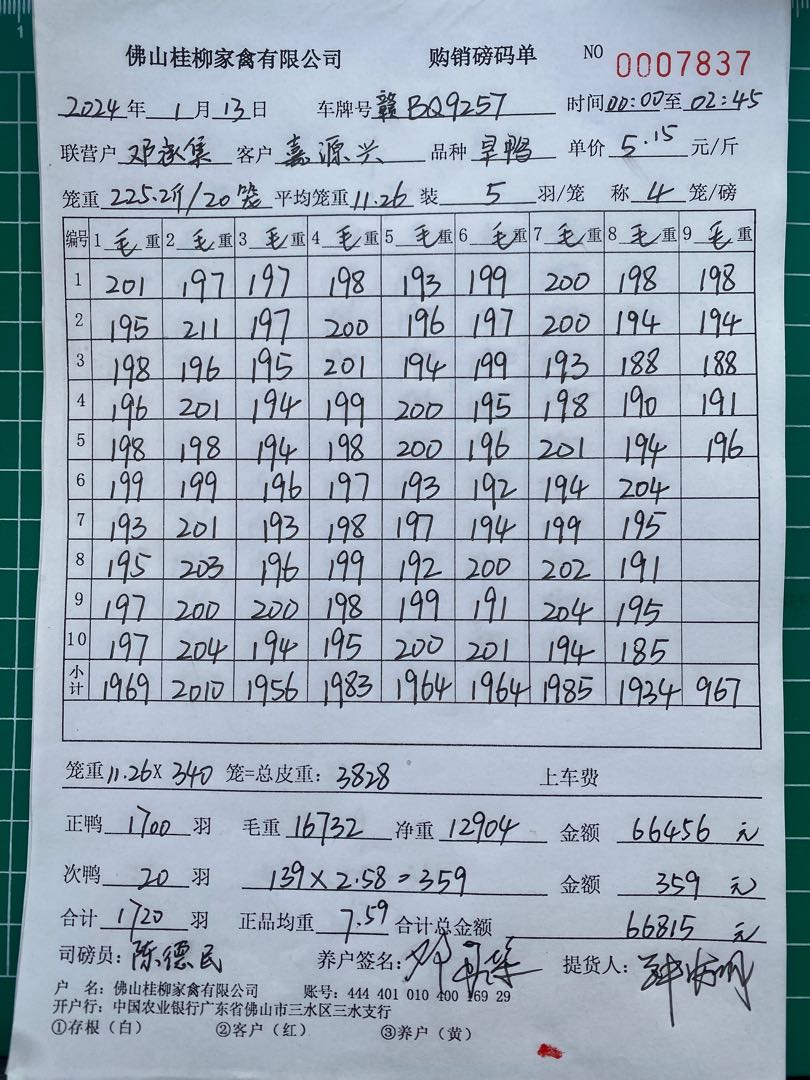 佛山桂柳家禽有限公司 购销磅码单 NO 0007837
2024年 1月13日 车牌号 赣BQ9257 时间00:00至02:45
联营户 邓承集 客户 嘉源兴 品种 旱鸭 单价 5.15 元/斤
笼重 225.2斤/20笼 平均笼重11.26 装 5 羽/笼 称 4 笼/磅
编号 1 毛重 2 毛重 3 毛重 4 毛重 5 毛重 6 毛重 7 毛重 8 毛重 9 毛重
1 201 197 197 198 193 199 200 198 198
2 195 211 197 200 196 197 200 194 194
3 198 196 195 201 194 199 193 188 188
4 196 201 194 199 200 195 198 190 191
5 198 198 194 198 200 196 201 194 196
6 199 199 196 197 193 192 194 204
7 193 201 193 198 197 194 199 195
8 195 203 196 199 192 200 202 191
9 197 200 200 198 199 191 204 195
10 197 204 194 195 200 201 194 185
小计 1969 2010 1956 1983 1964 1964 1985 1934 967
笼重11.26×340 笼=总皮重：3828 上车费
正鸭 1700 羽 毛重 16732 净重 12904 金额 66456 元
次鸭 20 羽 139×2.58=359 金额 359 元
合计 1720 羽 正品均重 7.59 合计总金额 66815 元
司磅员：陈德民 养户签名： 提货人：
户 名：佛山桂柳家禽有限公司 账号：444 401 010 400 169 29
开户行：中国农业银行广东省佛山市三水区三水支行
①存根（白） ②客户（红） ③养户（黄）